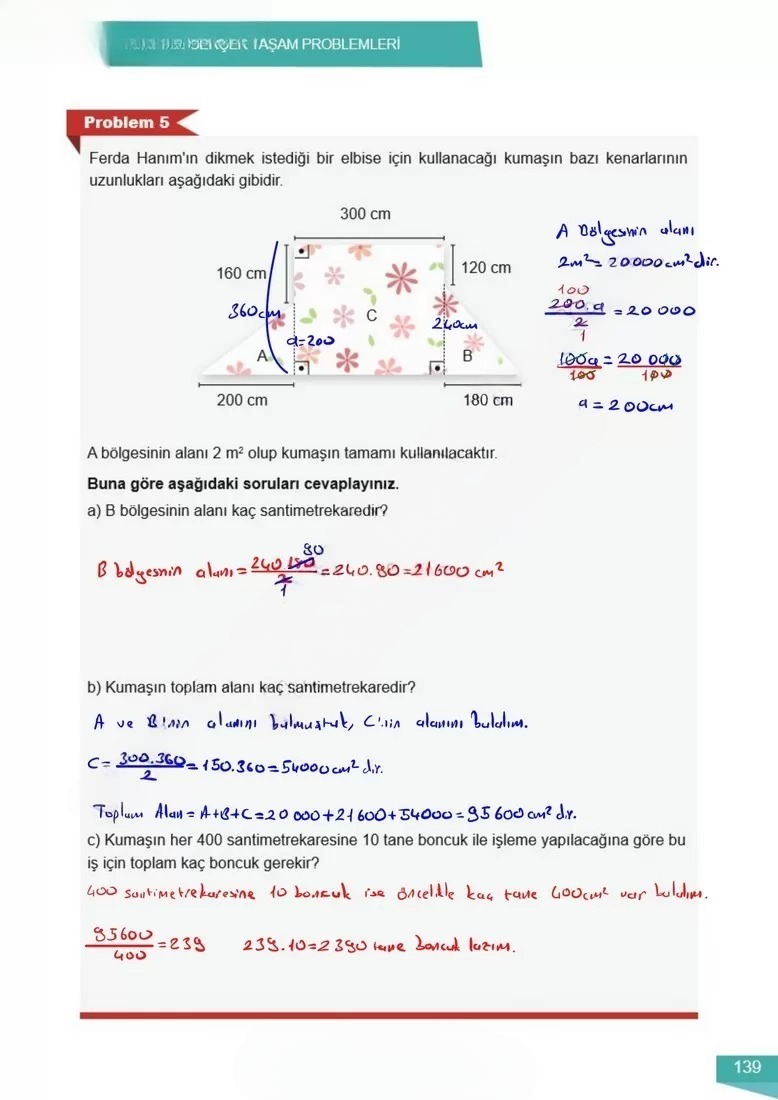 TAŞAM PROBLEMLERİ
Problem 5
Ferda Hanım'ın dikmek istediği bir elbise için kullanacağı kumaşın bazı kenarlarının
uzunlukları aşağıdaki gibidir.
300 cm
A Bölgesinin alanı
2m² = 20000 cm² dir.
160 cm
120 cm
100
200.a = 20 000
2
1
360cm
C
240cm
a=200
A
B
100a = 20 000
100 100
200 cm
180 cm
a = 200cm
A bölgesinin alanı 2 m² olup kumaşın tamamı kullanılacaktır.
Buna göre aşağıdaki soruları cevaplayınız.
a) B bölgesinin alanı kaç santimetrekaredir?
90
B bölgesnin alanı = 240.180 = 240.90 = 21600 cm²
2
1
b) Kumaşın toplam alanı kaç santimetrekaredir?
A ve B'nin alanını bulmuştuk, C'nin alanını bulalım.
C = 300.360 = 150.360 = 54000 cm² dir.
2
Toplam Alan = A+B+C = 20 000+21600+54000 = 95600 cm² dir.
c) Kumaşın her 400 santimetrekaresine 10 tane boncuk ile işleme yapılacağına göre bu
iş için toplam kaç boncuk gerekir?
400 santimetrekaresine 10 boncuk ise öncelikle kaç tane 400cm² var bulalım.
95600 = 239 239.10=2390 tane boncuk lazım.
400
139